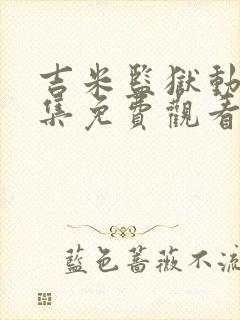 吉米監獄動
集免費觀看
藍色薔薇不流